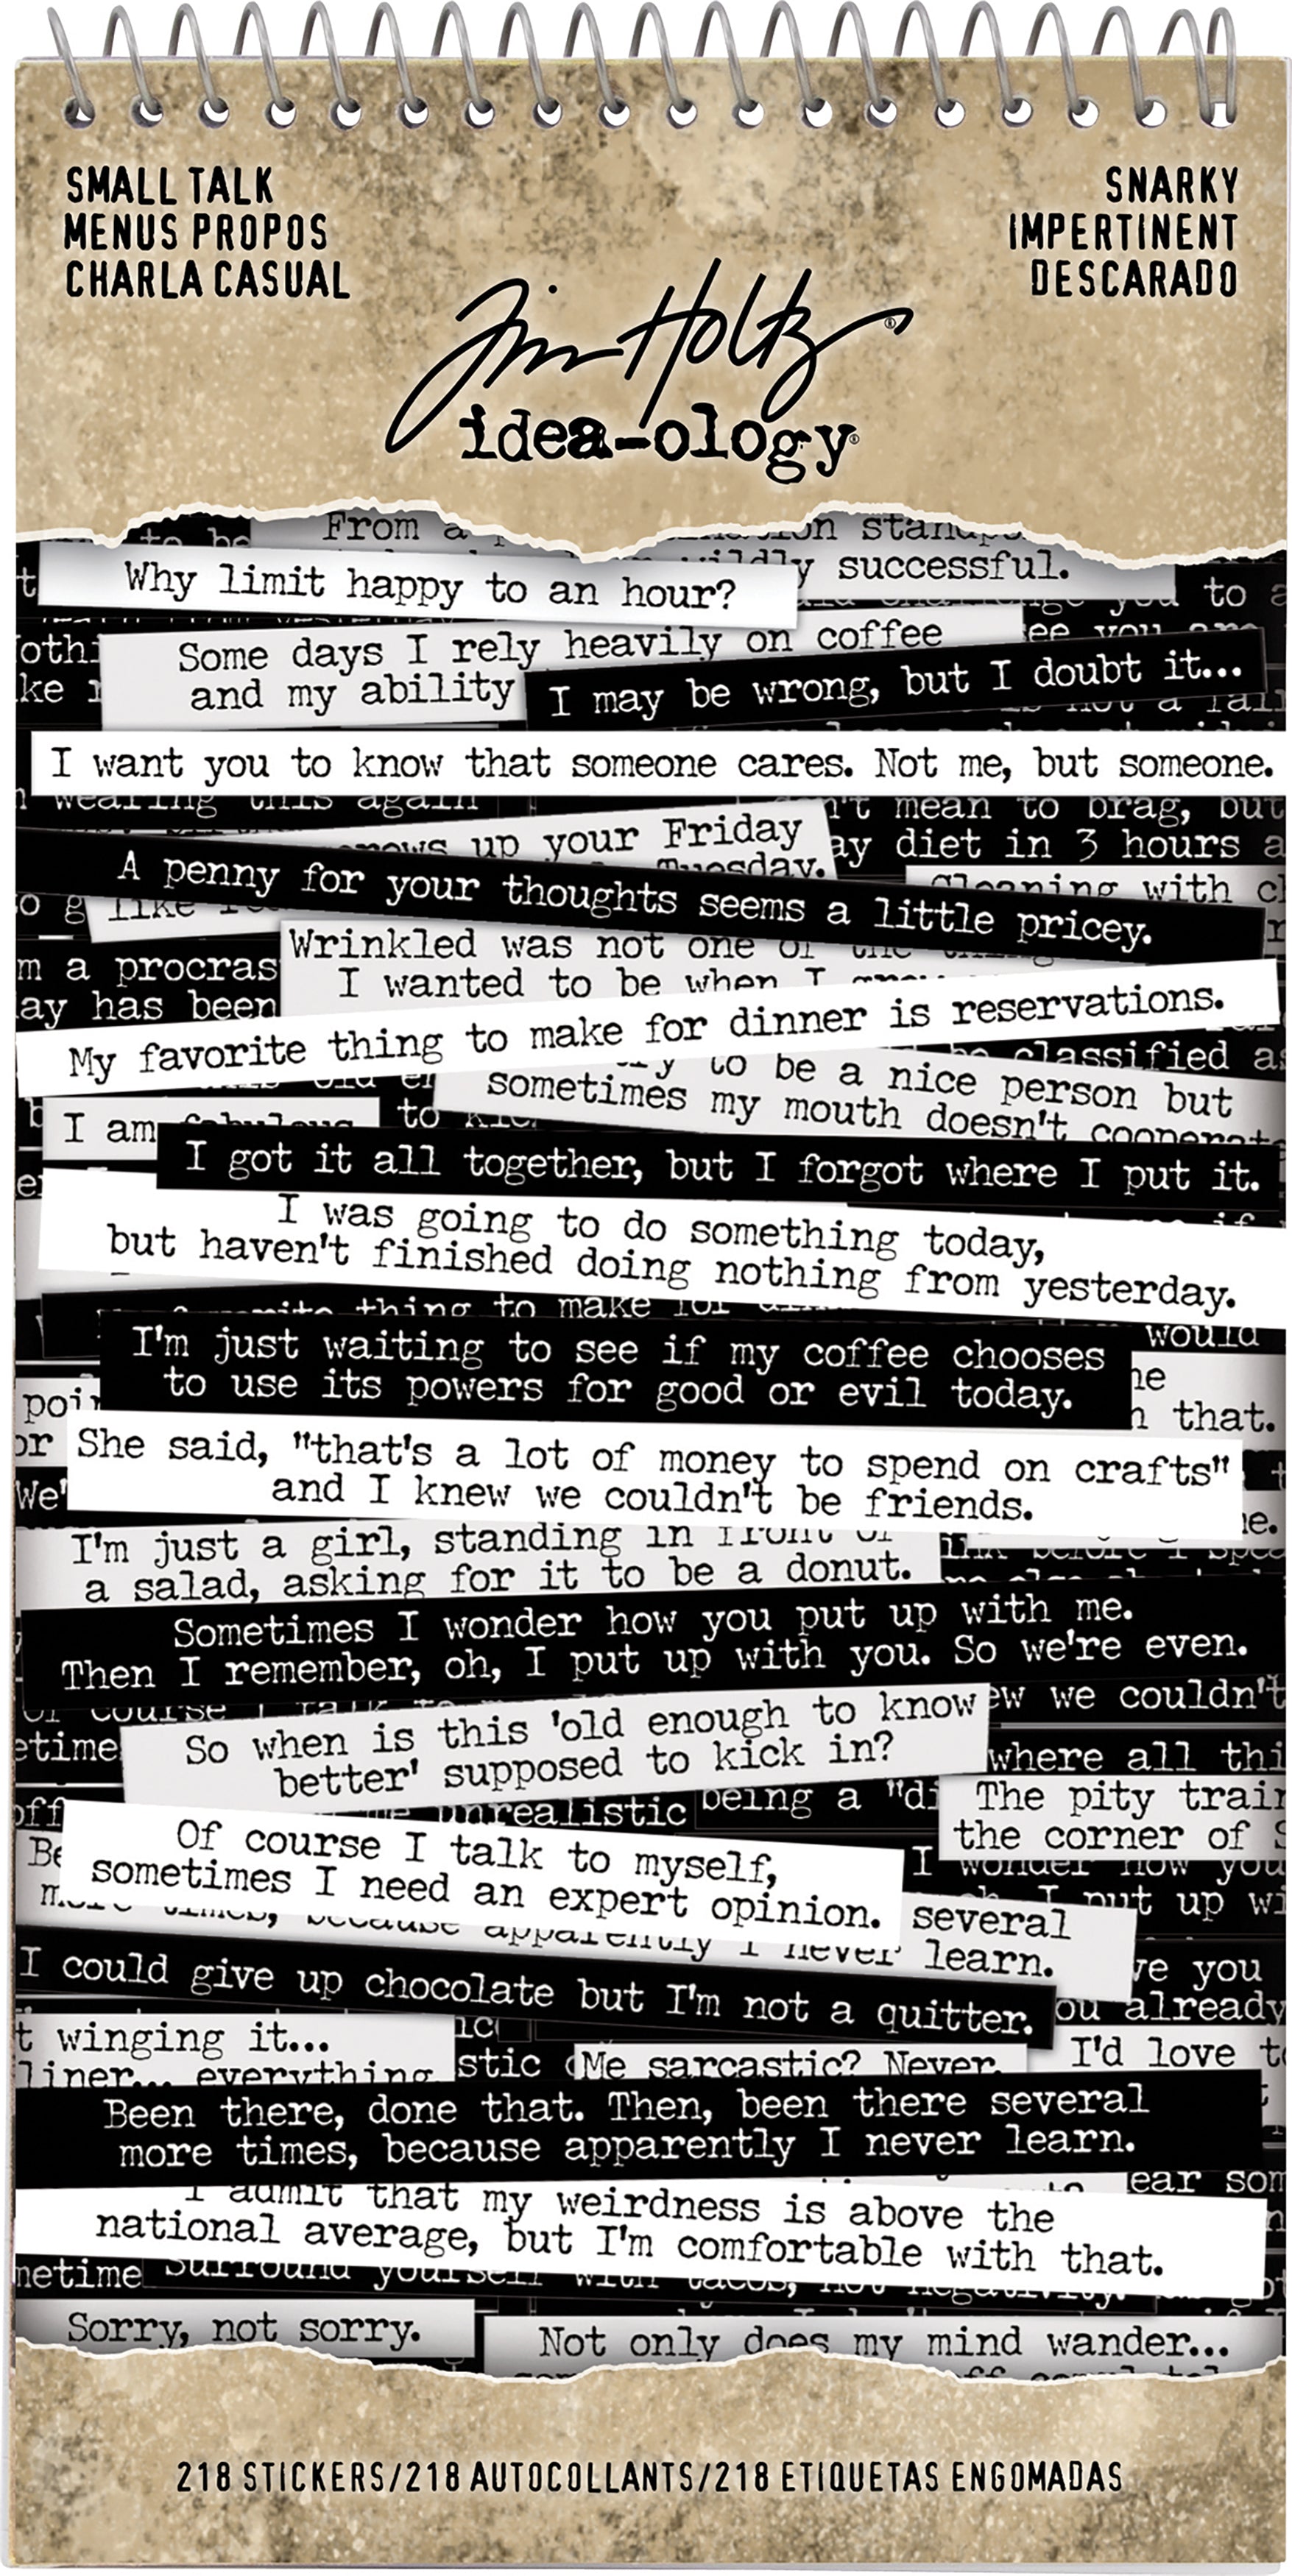 SMALL TALK
MENUS PROPOS
CHARLA CASUAL
SNARKY
IMPERTINENT
DESCARADO
Tim Holtz®
idea-ology®
From a
successful.
Why limit happy to an hour?
to a
Some days I rely heavily on coffee
and my ability
I may be wrong, but I doubt it...
I want you to know that someone cares. Not me, but someone.
wearing this again
mean to brag, but
up your Friday
Tuesday.
diet in 3 hours
A penny for your thoughts seems a little pricey.
Cleaning with
Wrinkled was not one of the
I wanted to be when I
m a procras
has been
My favorite thing to make for dinner is reservations.
classified as
to be a nice person but
sometimes my mouth doesn't cooperate
I am fabulous
to
I got it all together, but I forgot where I put it.
I was going to do something today,
but haven't finished doing nothing from yesterday.
thing to make for
would
I'm just waiting to see if my coffee chooses
to use its powers for good or evil today.
that.
She said, "that's a lot of money to spend on crafts"
and I knew we couldn't be friends.
I'm just a girl, standing in front of
a salad, asking for it to be a donut.
Sometimes I wonder how you put up with me.
Then I remember, oh, I put up with you. So we're even.
we couldn't
So when is this 'old enough to know
better' supposed to kick in?
where all thi
unrealistic
being a "di
The pity train
the corner of
Of course I talk to myself,
sometimes I need an expert opinion.
I wonder how you
I put up wi
several
more times, because apparently I never learn.
you
already
I could give up chocolate but I'm not a quitter.
winging it...
liner... everything
Me sarcastic? Never.
I'd love to
Been there, done that. Then, been there several
more times, because apparently I never learn.
I admit that my weirdness is above the
national average, but I'm comfortable with that.
Surround yourself with tacos, not negativity.
Sorry, not sorry.
Not only does my mind wander...
218 STICKERS/218 AUTOCOLLANTS/218 ETIQUETAS ENGOMADAS